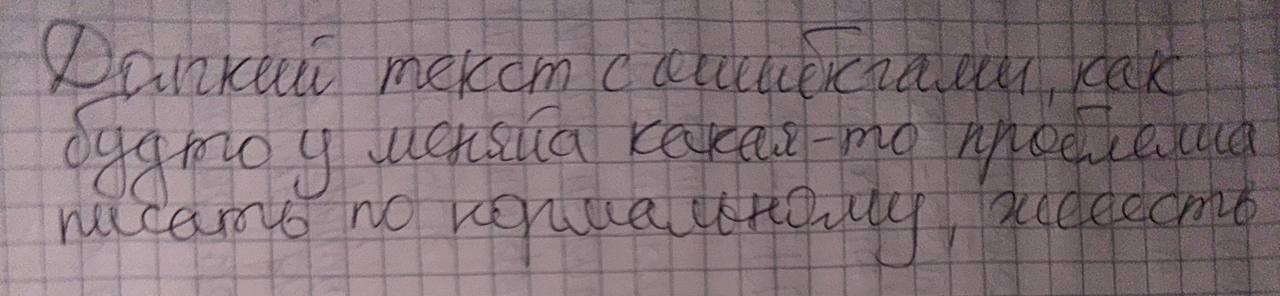 Дапкий текст с ошшибкгами, как
буддто у меняйа какая-то проблемма
писать по нормальному, жееесть